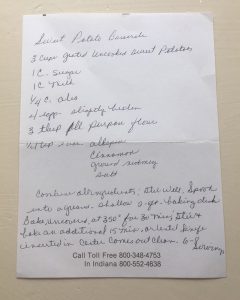 Sweet Potato Casserole
3 Cups grated Uncooked Sweet Potatoes
1 C. Sugar
1 C. Milk
1/4 C. oleo
4 eggs slightly beaten
3 tbsp all purpose flour
allspice
Cinnamon
ground nutmeg
Salt
Combine all ingredients, stir well, Spoon
into a grease shallow 2 qt. baking dish
Bake uncovered at 350° for 30 min, Stir &
bake an additional 15 min. or until knife
inserted in Center Comes out Clean. 6-8
Servings
Call Toll Free 800-348-4753
In Indiana 800-552-4638